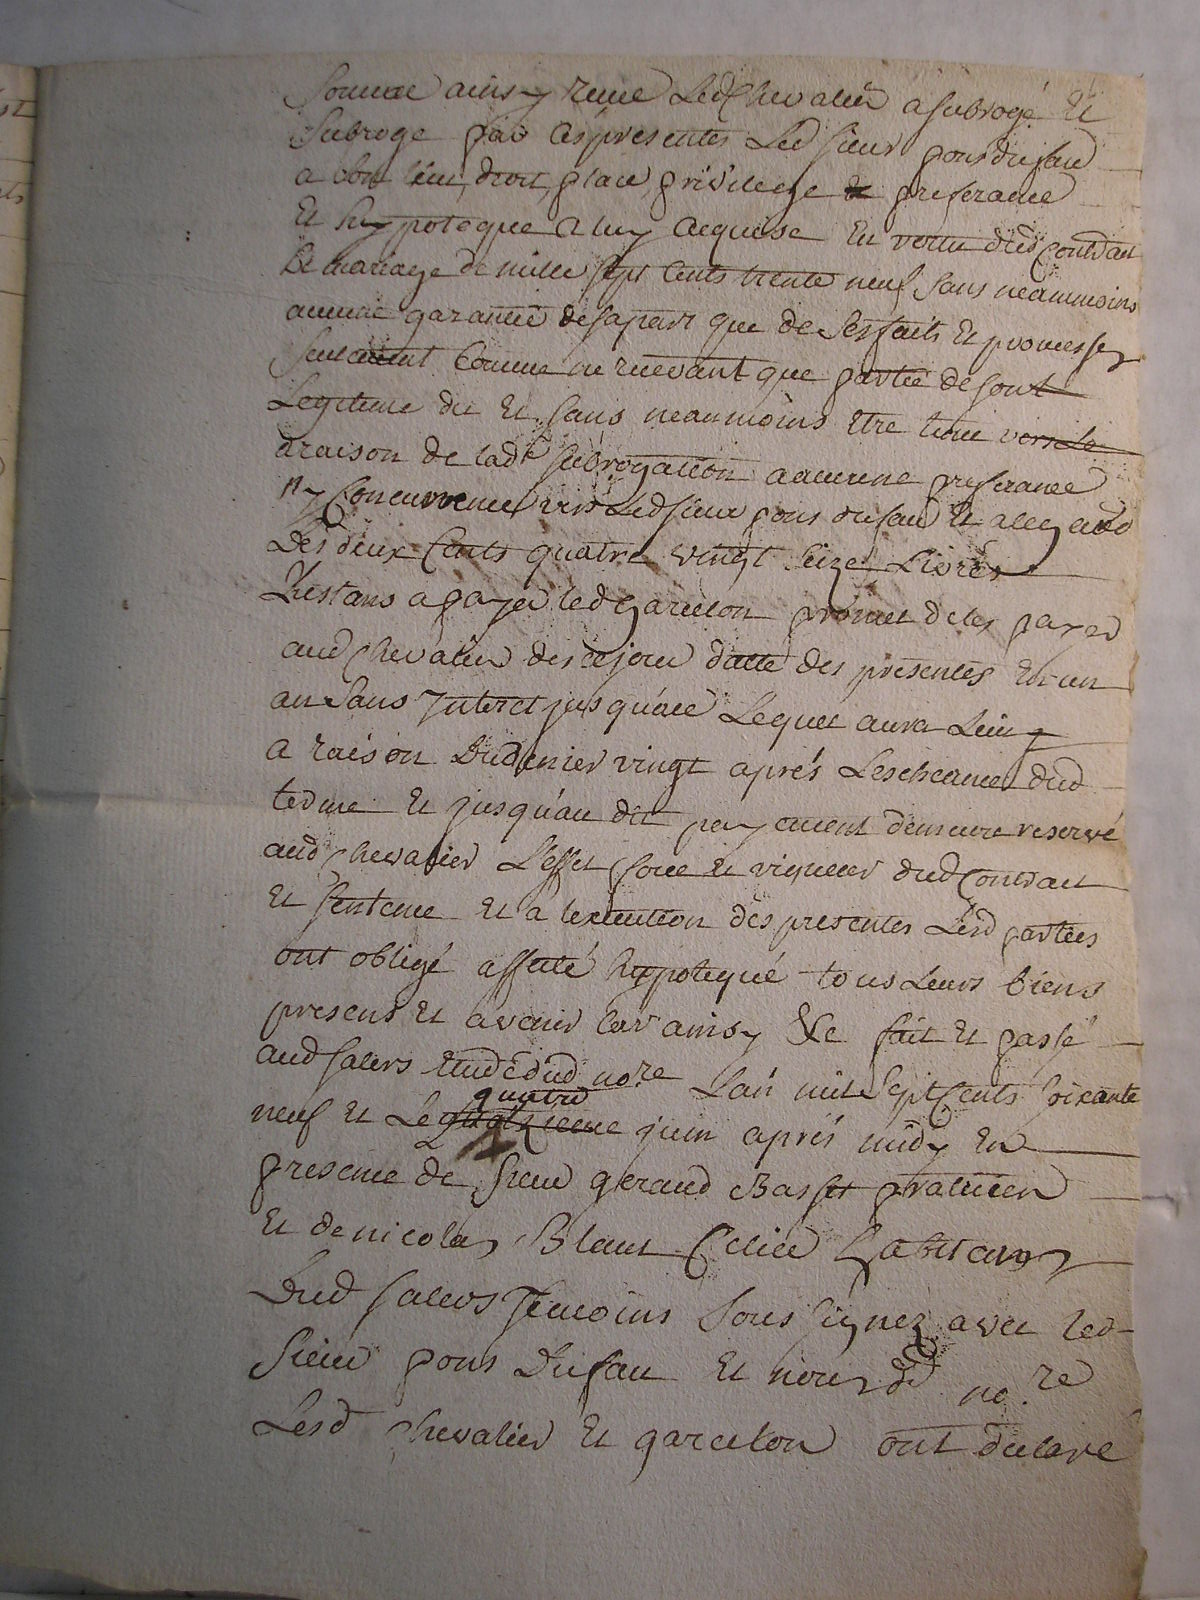 Somme ainsy recue Led Chevalier a subrogé Et
Subroge par ces presentes Led sieur pons dufau
a son lieu, droit, place, privilege et preferance
Et hypoteque a luy acquise En vertu dud Contrait
de mariage de mille sept cents trente neuf sans neammoins
aucune garantie de sa part que de ses faits Et promesses
Seulement Comme ne recevant que partie de sont
Legitime du Et sans neanmoins Etre tenu
a raison de lad.e subrogation a aucune preferance
ny Concurrence vers Led sieur pons dufau Et a legard
Des deux Cents quatre vingt seize Livres
Restans a payer led garcelon promet de les payer
aud Chevalier des ce jour datte des presentes En un
an sans Interet jusqu'alé Lequel aura Lieu
a raison Du denier vingt aprés Lescheance dud
terme Et jusqu'au dit payement demeure reservé
aud chevalier L'effet force Et vigueur dud Contrait
Et sentence Et a lexecution des presentes Lesd parties
ont obligé affecté hypotequé tous Leurs biens
presens Et avenir Car ainsy &c fait Et passé
aud salers Etude dud no.re Lan mil Sept Cents soixante
quatre
neuf Et Le juin aprés midy En
presence de sieur geraud Basset praticien
Et de nicolas Blanc habitans
Dud salers Temoins Sous signez avec led
Sieur pons Dufau Et nous d no.re
Lesd chevalier Et garcelon ont declaré